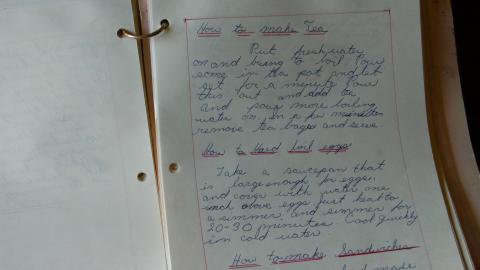 How to make Tea
Put fresh water
on and being to boil Pour
some in tha pot and let
set for a minute Pour
this out and add tea
And pour more boiling
water on, In a few minutes
remove tea bages and serve
How to Hard boil eggs
Take a saucepan that
is large enough for eggs.
and cover with water one
inch above eggs just heat to
a simmer. and simmer for
20-30 minutes Cool quickly
in cold water
How to make Sandwiches
made